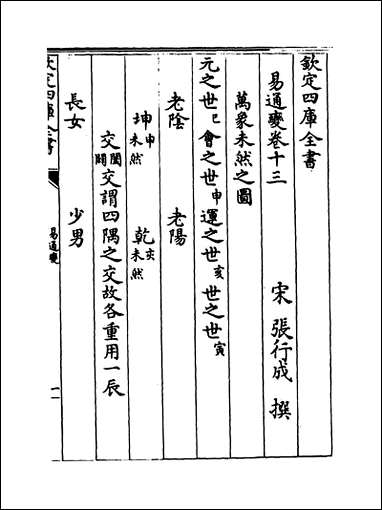 欽定四庫全書
易通變卷十三
宋 張行成 撰
萬象未然之圖
元之世巳 會之世申 運之世亥 世之世寅
老陰 老陽
坤申未然 乾亥未然
交闔闢交謂四隅之交故各重用一辰
長女 少男
欽定四庫全書
易通變
一